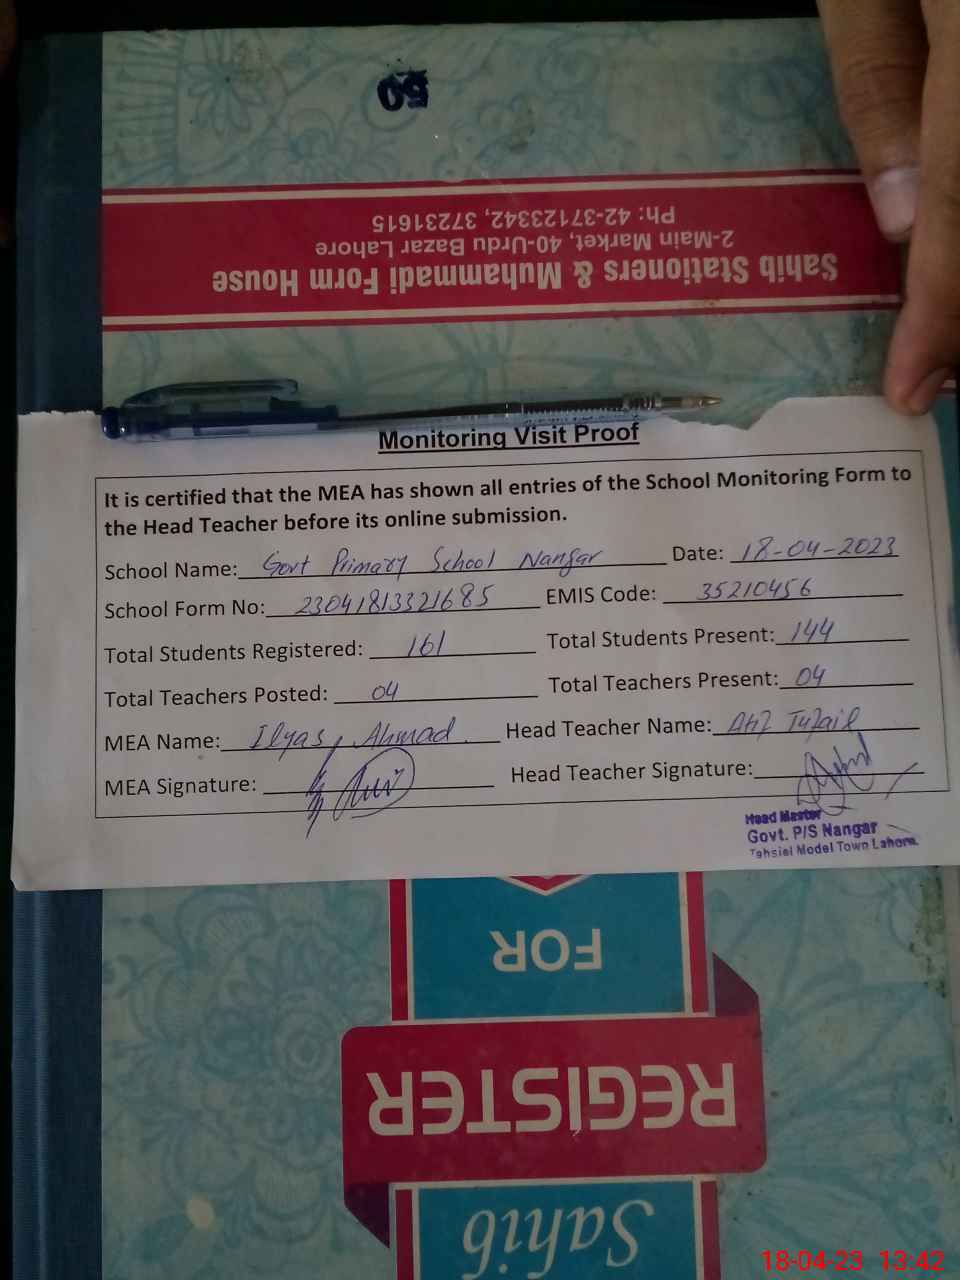 50
Sahib Stationers & Muhammadi Form House
2-Main Market, 40-Urdu Bazar Lahore
Ph: 42-37123342, 37231615
Monitoring Visit Proof
It is certified that the MEA has shown all entries of the School Monitoring Form to
the Head Teacher before its online submission.
School Name: Govt Primary School Nangar Date: 18-04-2023
School Form No: 23041813321685 EMIS Code: 35210456
Total Students Registered: 161 Total Students Present: 144
Total Teachers Posted: 04 Total Teachers Present: 04
MEA Name: Ilyas Ahmad Head Teacher Name: Tufail
MEA Signature: Head Teacher Signature:
Head Master
Govt. P/S Nangar
Tahsiel Model Town Lahore.
Sahib
REGISTER
FOR
18-04-23 13:42